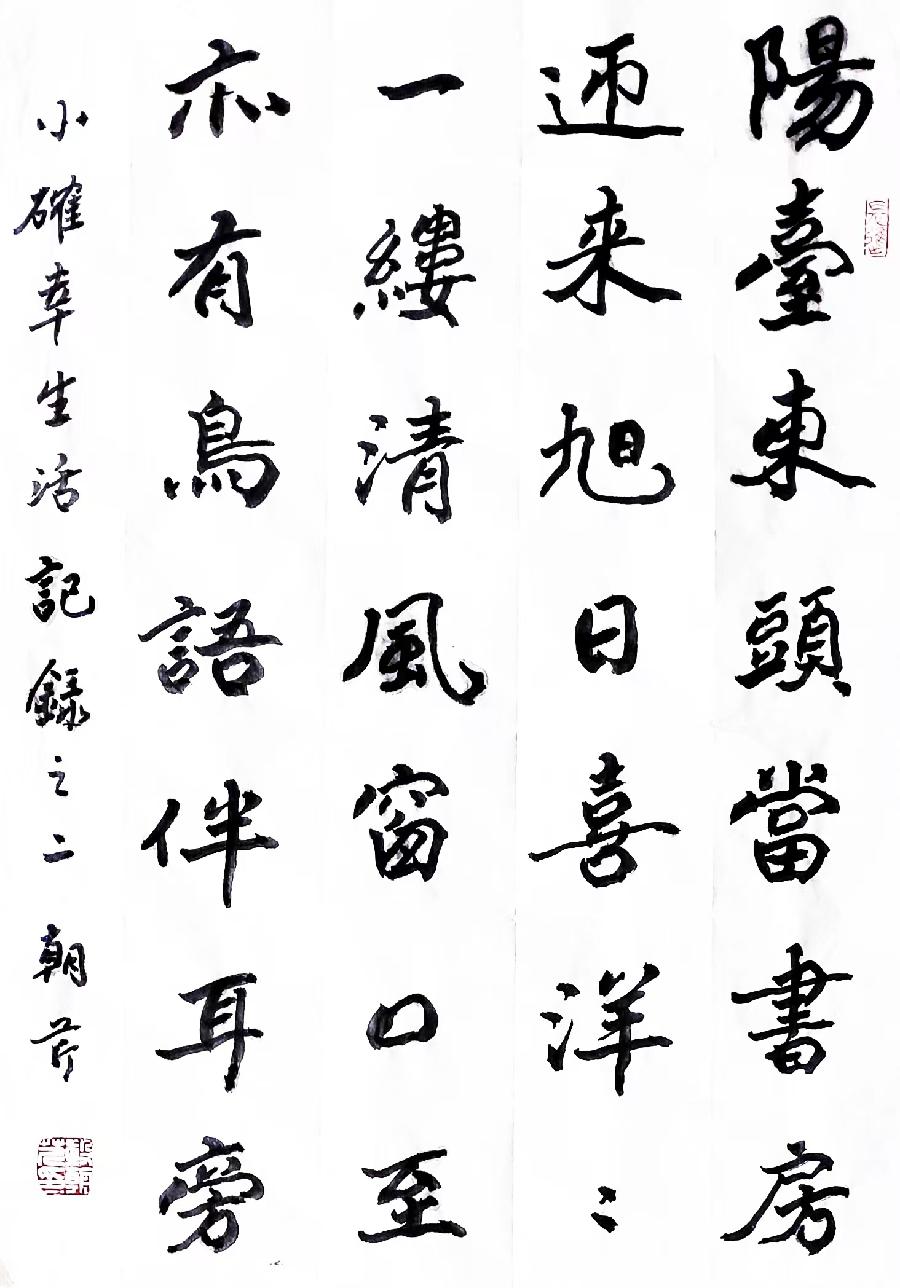 陽臺東頭當書房
迊来旭日喜洋〻
一縷清風窗口至
亦有鳥語伴耳旁
小確幸生活記録之二 朝芹